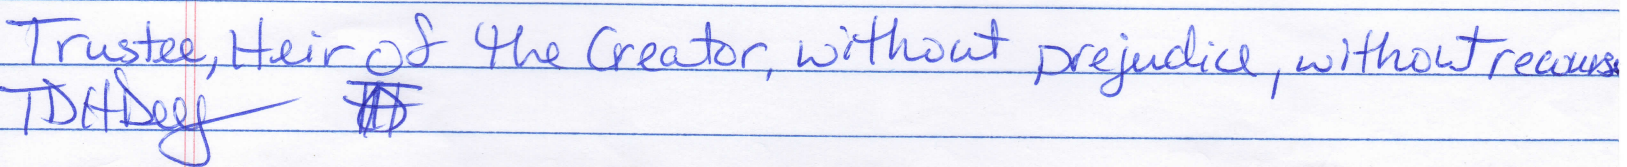 Trustee, Heir of the Creator, without prejudice, without recourse